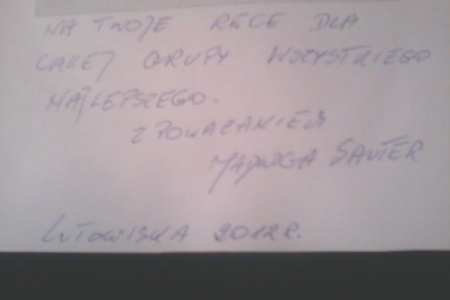 NA TWOJE RĘCE DLA
CAŁEJ GRUPY WSZYSTKIEGO
NAJLEPSZEGO.
Z POWAŻANIEM
JADWIGA SAUTER
LUTOWISKA 2012 R.